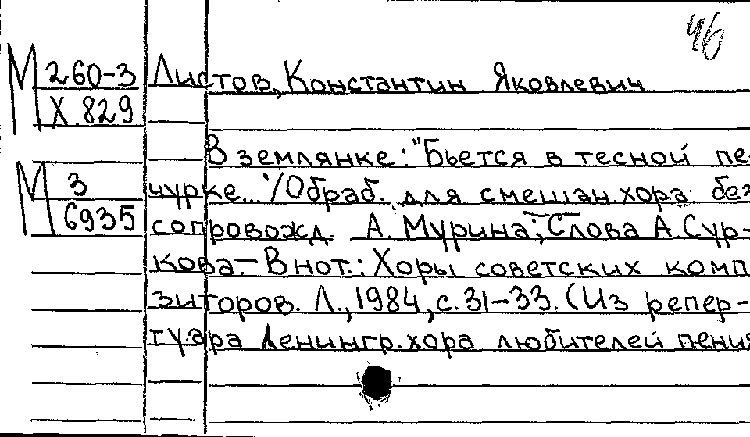 46
М 260-3
Х 829
Листов, Константин Яковлевич
В землянке: "Бьется в тесной пе-
М 3
6935
чурке..."/Обраб. для смешан. хора без
сопровожд. А. Мурина; Слова А. Сур-
кова.- В нот.: Хоры советских компо
зиторов. Л., 1984, с. 31-33. (Из репер-
туара Ленингр. хора любителей пения